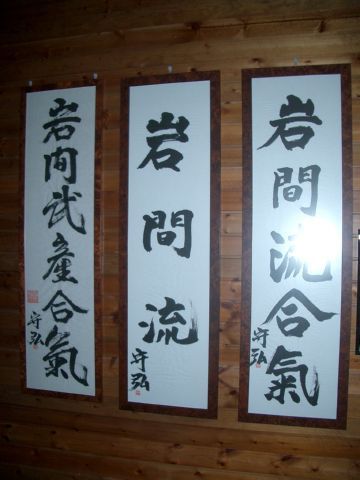 岩間武産合氣
守弘
岩間流
守弘
岩間流合氣
守弘